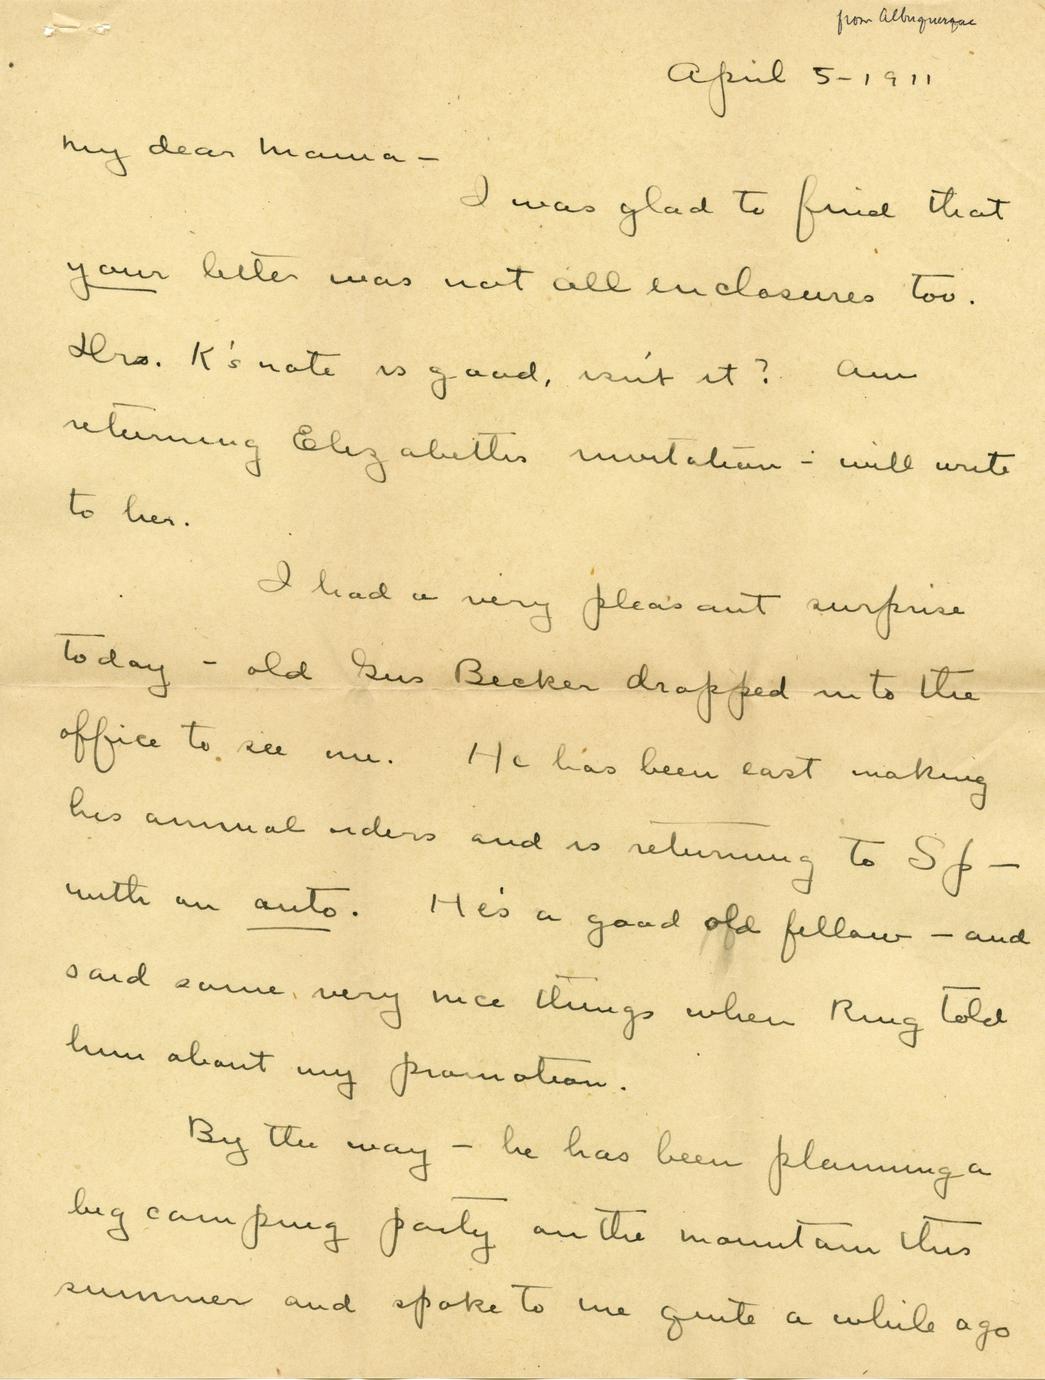 from Albuquerque
April 5-1911
My dear Mama —
I was glad to find that
your letter was not all enclosures too.
Mrs. K's note is good, isn't it? Am
returning Elizabeth's invitation - will write
to her.
I had a very pleasant surprise
today - old Gus Becker dropped into the
office to see me. He has been east making
his annual orders and is returning to Sp —
with an auto. He's a good old fellow — and
said some very nice things when Ring told
him about my promotion.
By the way — he has been planning a
big camping party on the mountain this
summer and spoke to me quite a while ago